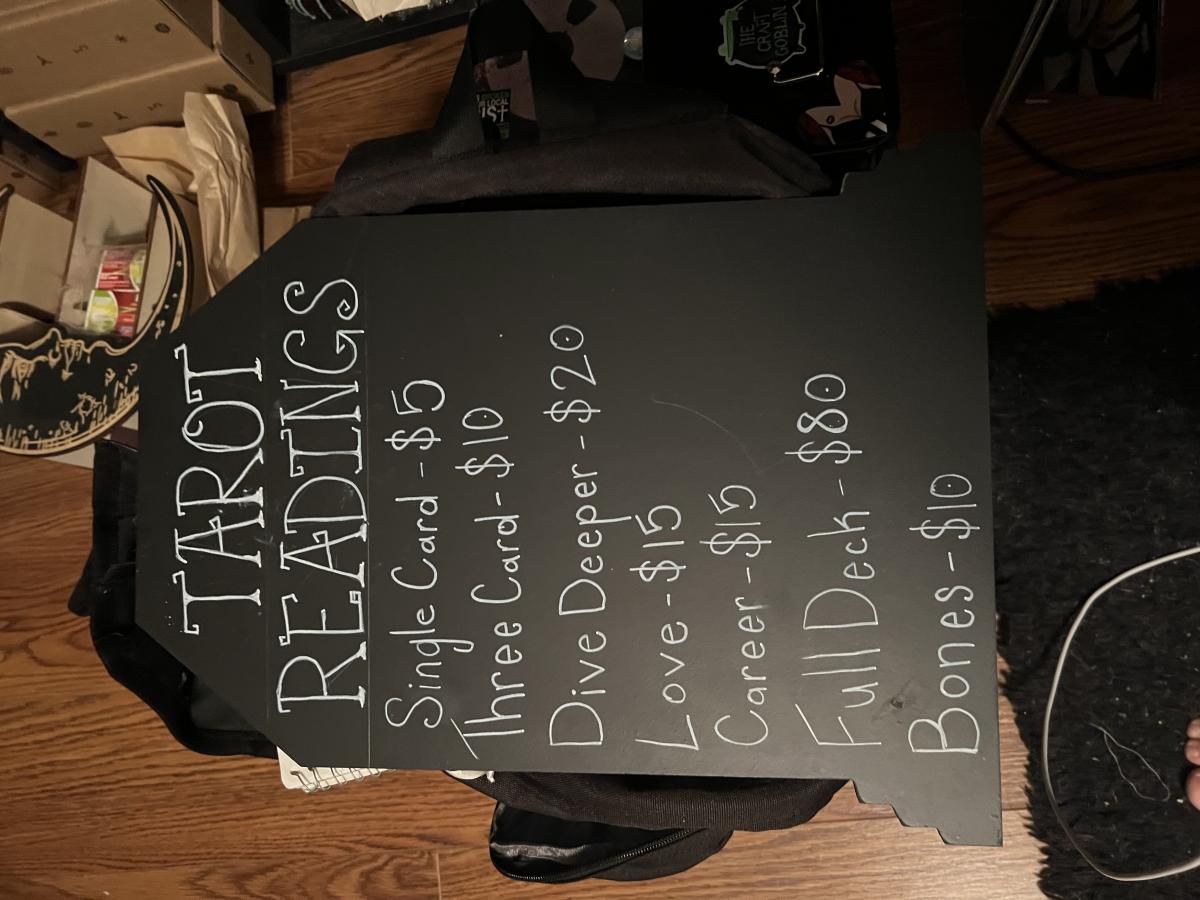 TAROT
READINGS
Single Card - $5
Three Card - $10
Dive Deeper - $20
Love - $15
Career - $15
Full Deck - $80
Bones - $10
THE
CRAFT
GOBLIN
LOCAL